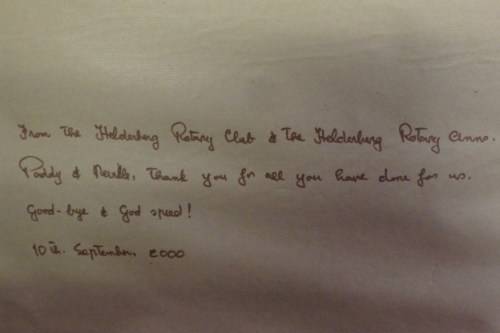 From the Helderberg Rotary Club & the Helderberg Rotary Anns.
Paddy & Merle, thank you for all you have done for us.
Good-bye & God speed!
10th. September, 2000